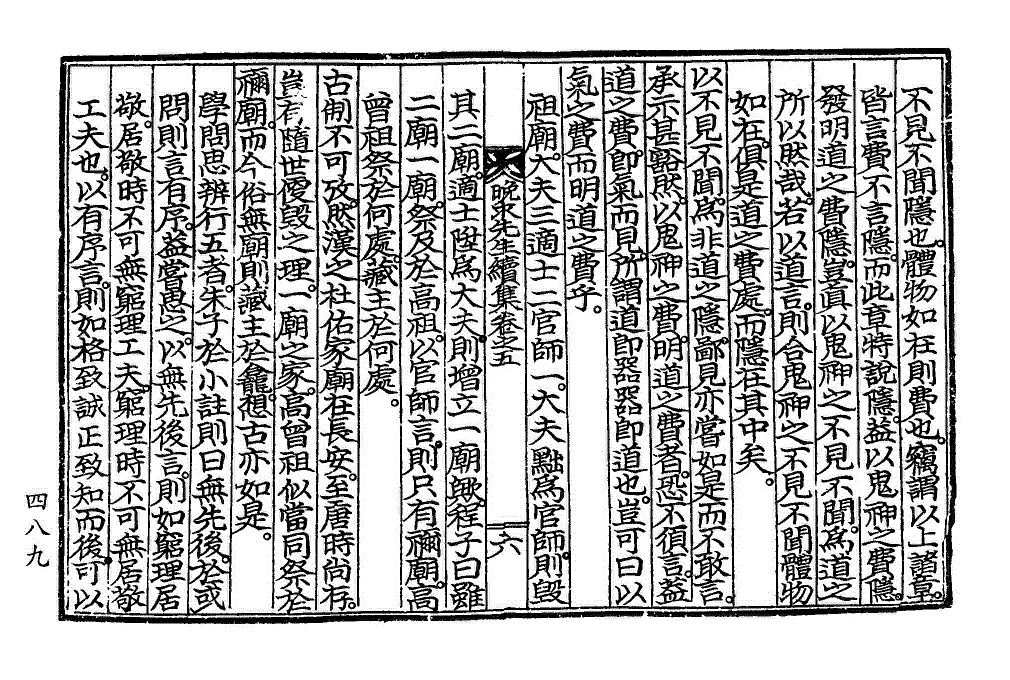 不見不聞隱也。體物如在則費也。竊謂以上諸章。
皆言費不言隱。而此章特說隱。益以鬼神之費隱。
發明道之費隱。豈直以鬼神之不見不聞。爲道之
所以然哉。若以道言。則合鬼神之不見不聞體物
如在。俱是道之費處。而隱在其中矣。
以不見不聞。爲非道之隱。鄙見亦當如是而不敢言。
承示甚豁然。以鬼神之費。明道之費者。恐不須言。益
道之費。卽氣而見。所謂道卽器器卽道也。豈可曰以
氣之費而明道之費乎。
祖廟。大夫三適士二官師一。大夫黜爲官師。則毀
晩求先生續集卷之五 六
其二廟。適士陞爲大夫。則增立一廟歟。程子曰雖
二廟一廟。祭及於高祖。以官師言。則只有禰廟。高
曾祖祭於何處。藏主於何處。
古制不可攷。然漢之杜佑家廟在長安。至唐時尙存。
豈有隨世復毀之理。一廟之家。高曾祖似當同祭於
禰廟。而今俗無廟則藏主於龕。想古亦如是。
學問思辨行五者。朱子於小註則曰無先後。於或
問則言有序。益嘗思之。以無先後言。則如窮理居
敬。居敬時不可無窮理工夫。窮理時不可無居敬
工夫也。以有序言。則如格致誠正致知而後。可以
四八九